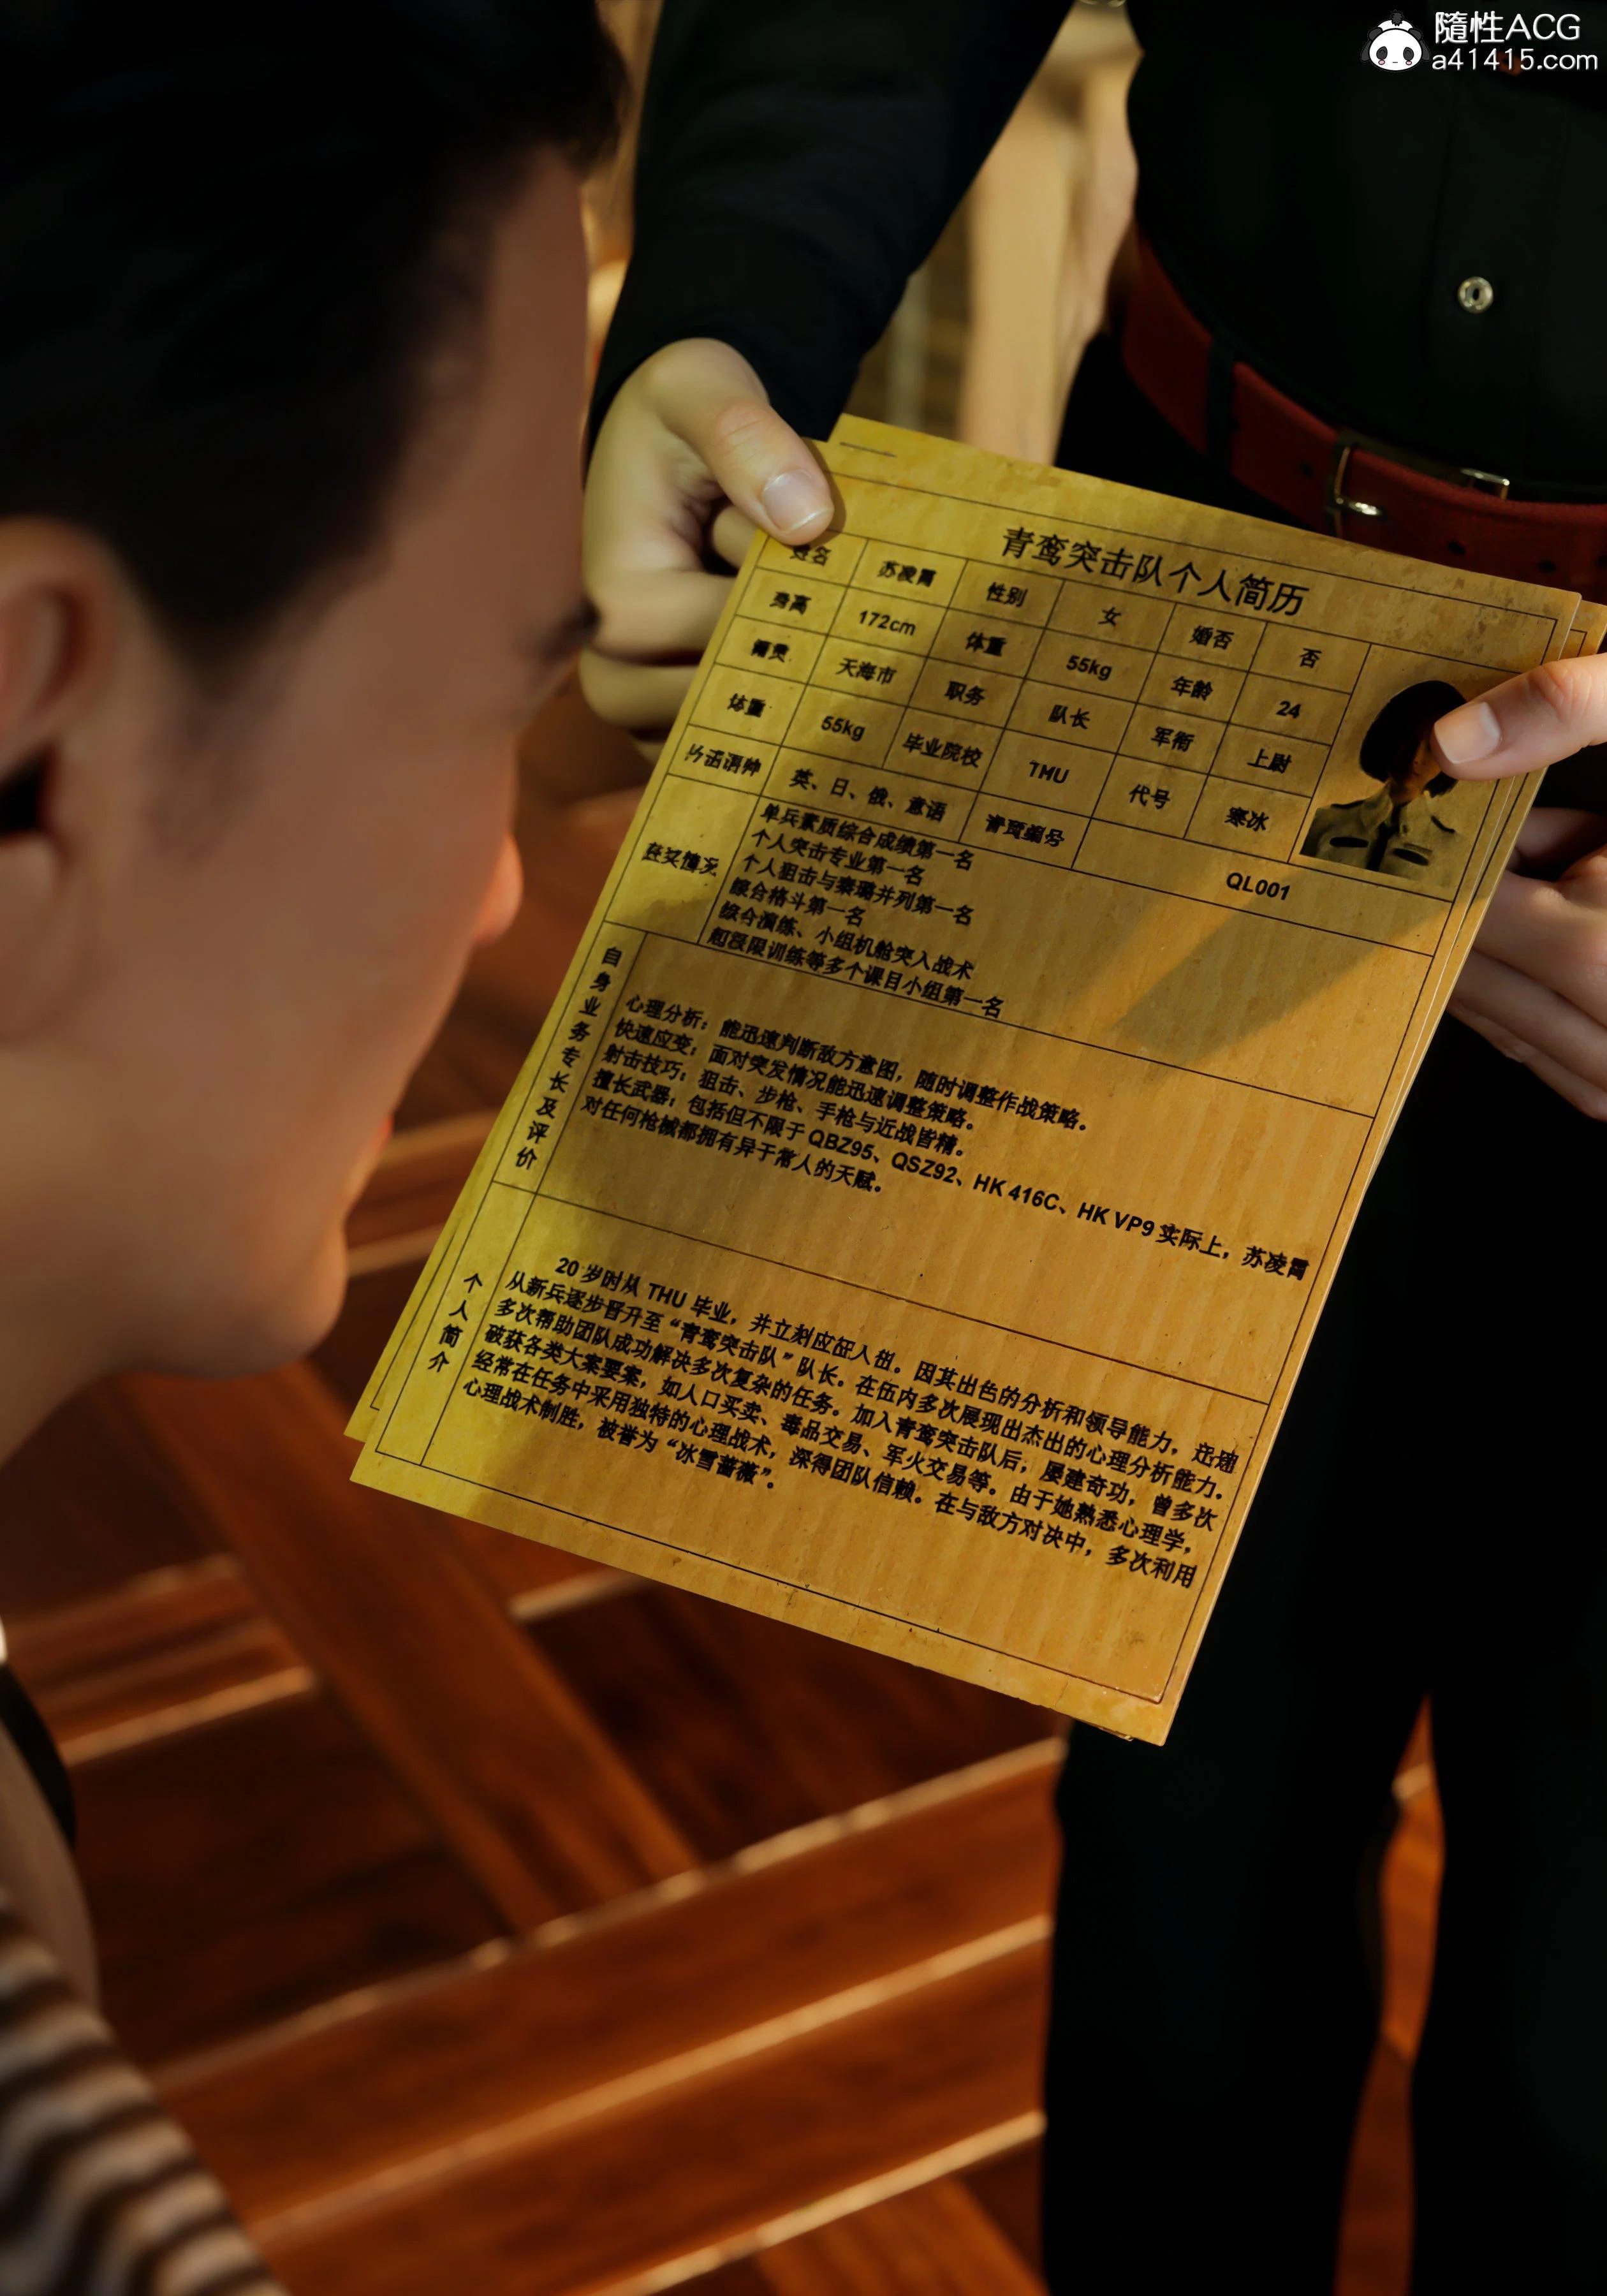 隨性ACG
a41415.com
青鸾突击队个人简历
姓名 苏凌霄 性别 女 婚否 否
身高 172cm 体重 55kg 年龄 24
籍贯 天海市 职务 队长 军衔 上尉
体重 55kg 毕业院校 THU 代号 寒冰
英、日、俄、意语 QL001
获奖情况
单兵素质综合成绩第一名
个人突击专业第一名
个人狙击与秦璐并列第一名
综合格斗第一名
综合演练、小组机舱突入战术
超极限训练等多个课目小组第一名
自身业务专长及评价
心理分析：能迅速判断敌方意图，随时调整作战策略。
快速应变：面对突发情况能迅速调整策略。
射击技巧：狙击、步枪、手枪与近战皆精。
擅长武器：包括但不限于 QBZ95、QSZ92、HK 416C、HK VP9 实际上，苏凌霄
对任何枪械都拥有异于常人的天赋。
个人简介
20 岁时从 THU 毕业，并立刻应征入伍。因其出色的分析和领导能力，迅速
从新兵逐步晋升至“青鸾突击队”队长。在伍内多次展现出杰出的心理分析能力。
多次帮助团队成功解决多次复杂的任务。加入青鸾突击队后，屡建奇功，曾多次
破获各类大案要案，如人口买卖、毒品交易、军火交易等。由于她熟悉心理学，
经常在任务中采用独特的心理战术，深得团队信赖。在与敌方对决中，多次利用
心理战术制胜，被誉为“冰雪蔷薇”。